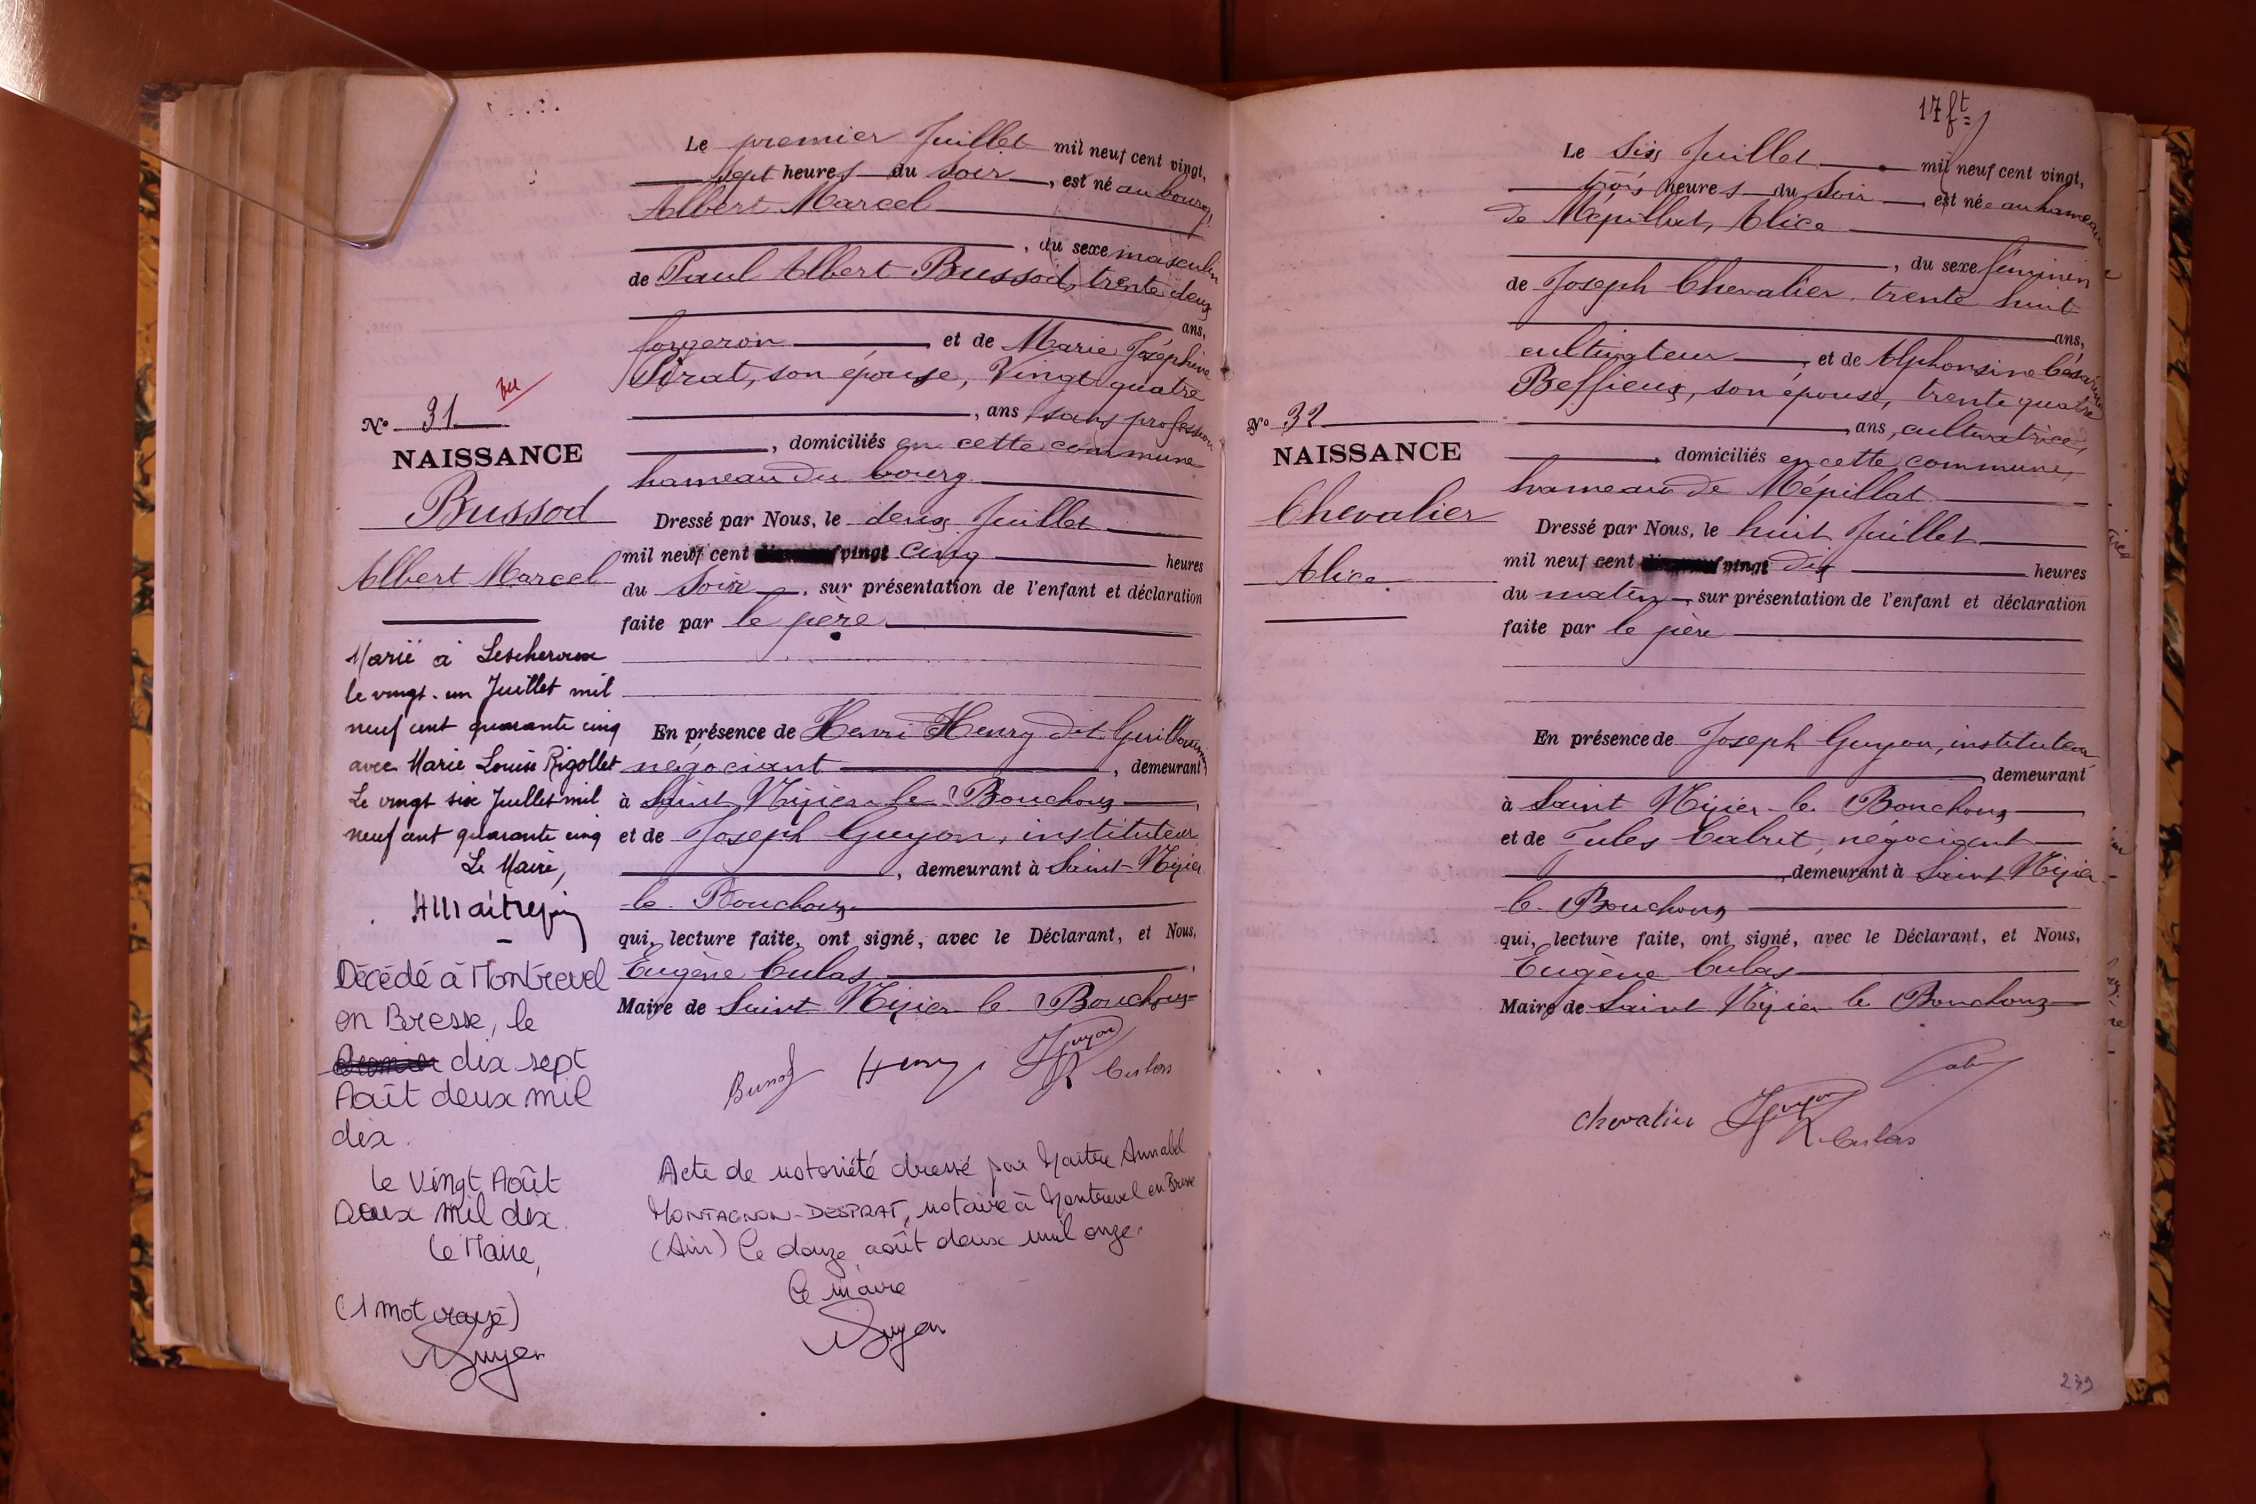 Le premier Juillet mil neuf cent vingt,
sept heures du soir, est né au bourg,
Albert Marcel
, du sexe masculin
de Paul Albert Bussod, trente deux
ans,
forgeron et de Marie Joséphine
Pirat, son épouse, Vingt quatre
, ans, sans profession
, domiciliés en cette commune
hameau du bourg
N° 31
NAISSANCE
Bussod
Albert Marcel
Dressé par Nous, le deux Juillet
mil neuf cent vingt cinq heures
du soir, sur présentation de l'enfant et déclaration
faite par le père
En présence de Henri Henry dit Guillaumin
négociant, demeurant
à Saint Nizier le Bouchoux,
et de Joseph Guyon, instituteur
, demeurant à Saint-Nizier
le Bouchoux
qui, lecture faite, ont signé, avec le Déclarant, et Nous,
Eugène Culas,
Maire de Saint Nizier le Bouchoux
Bussod Henry Guyon Culas
Marié à Lescheroux
le vingt-un Juillet mil
neuf cent quarante cinq
avec Marie Louise Rigollet
Le vingt six Juillet mil
neuf cent quarante cinq
Le Maire,
Décédé à Montrevel
en Bresse, le
dix sept
Août deux mil
dix.
Le Vingt Août
Deux mil dix.
Le Maire,
(1 mot rayé)
Acte de notoriété dressé par Maître Annabel
MONTAGNON-DESPRAT, notaire à Montrevel en Bresse
(Ain) le douze août deux mil onze.
Le maire
17 ft
Le Six Juillet mil neuf cent vingt,
trois heures du Soir est née au hameau
de Mépillat, Alice
, du sexe féminin
de Joseph Chevalier, trente huit
ans,
cultivateur, et de Alphonsine Césarine
Beffieux, son épouse, trente quatre
, ans, cultivatrice,
, domiciliés en cette commune,
hameau de Mépillat
N° 32
NAISSANCE
Chevalier
Alice
Dressé par Nous, le huit Juillet
mil neuf cent vingt dix heures
du matin, sur présentation de l'enfant et déclaration
faite par le père
En présence de Joseph Guyon, instituteur
, demeurant
à Saint Nizier le Bouchoux
et de Jules Cabut, négociant
, demeurant à Saint Nizier
le Bouchoux
qui, lecture faite, ont signé, avec le Déclarant, et Nous,
Eugène Culas
Maire de Saint Nizier le Bouchoux
Chevalier Guyon Culas
239